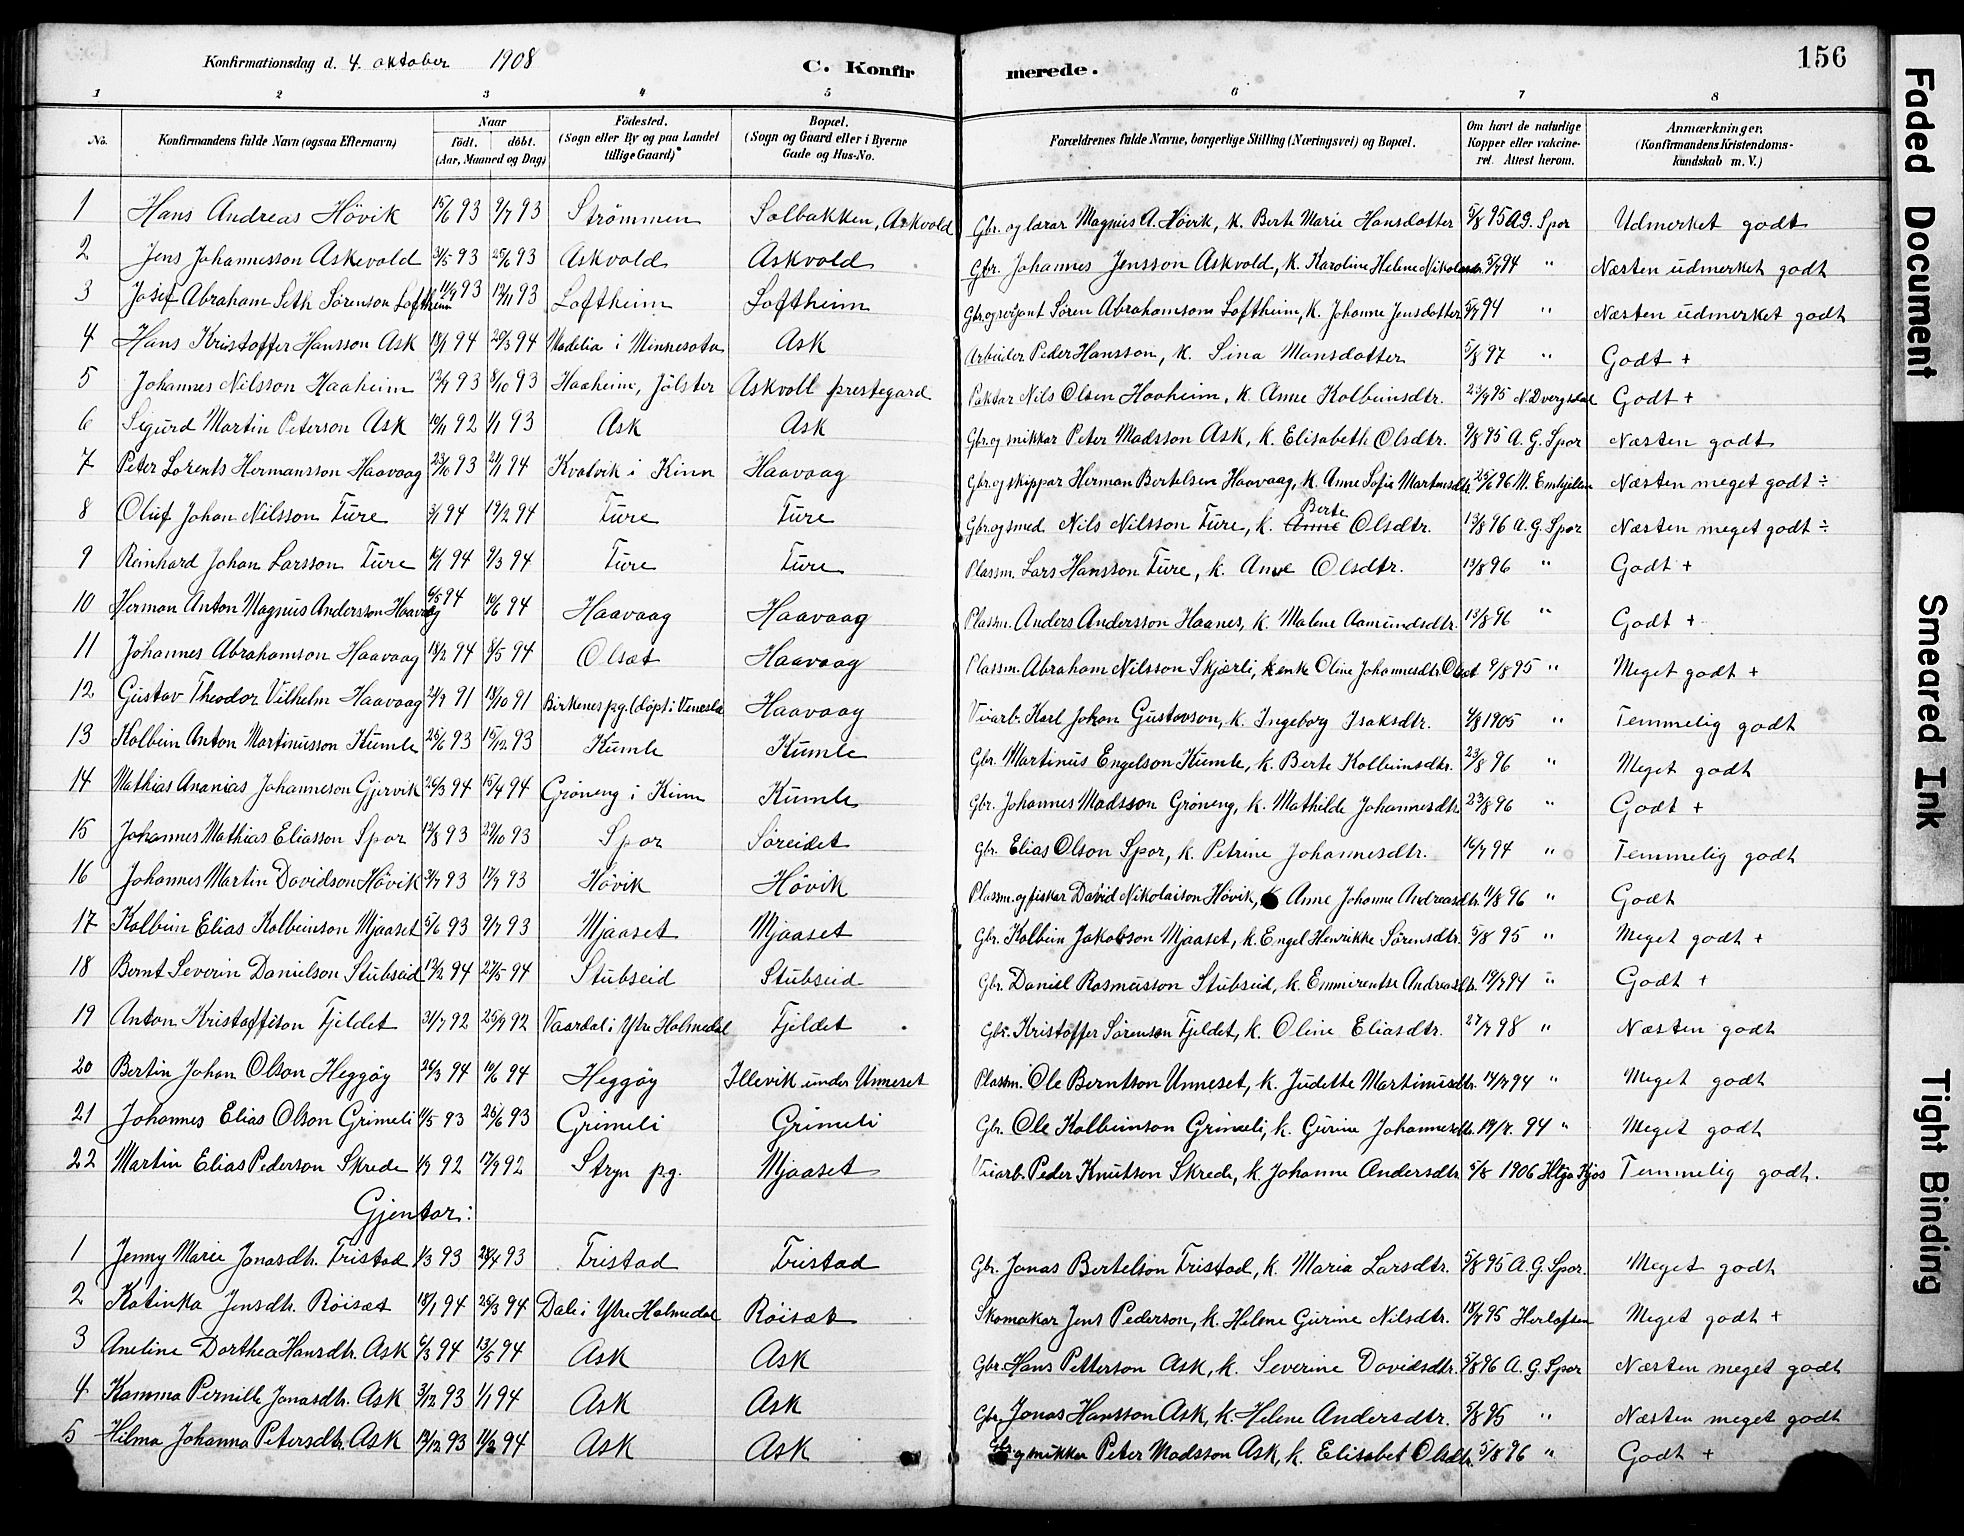 Konfirmationsdag d. 4. oktober 1908 C. Konfirmerede. 156
1 2 3 4 5 6 7 8
No. Konfirmandens fulde Navn (ogsaa Efternavn) Naar födt. döbt. (Aar, Maaned og Dag) Födested. (Sogn eller By og paa Landet tillige Gaard) Bopæl. (Sogn og Gaard eller i Byerne Gade og Hus-No. Forældrenes fulde Navne, borgerlige Stilling (Næringsvei) og Bopæl. Om havt de naturlige Kopper eller vakcineret. Attest herom. Anmærkninger. (Konfirmandens Kristendomskundskab m. V.)
1 Hans Andreas Hövik 15/6 93 9/7 93 Strömmen Solbakken, Askvold Gbr. og lærar Magnus A. Hövik, k. Berte Marie Hansdatter 5/8 95 A.G. Spor Udmerket godt
2 Jens Johannesson Askevold 31/5 93 25/6 93 Askvold Askvold Gbr. Johannes Jensson Askvold, k. Karoline Helene 5/7 94 " Næsten udmerket godt
3 Josef Abraham Seth Sörenson Loftheim 11/9 93 12/11 93 Loftheim Loftheim Gbr. og Sören Abrahamsom Loftheim, k. Johanne Jensdatter 5/7 94 " Næsten udmerket godt
4 Hans Kristoffer Hansson Ask 13/1 94 20/3 94 Madelia i Minnesota Ask Arbeider Peder Hansson, k. Sina Monsdatter 5/8 97 " Godt +
5 Johannes Nilsson Haaheim 12/9 93 8/10 93 Haaheim, Jölster Askvoll prestegard Paktar Nils Olsen Haaheim, k. Anne Kolbeinsdtr. 23/9 95 N. Dvergsdal Godt +
6 Sigurd Martin Peterson Ask 10/11 92 1/1 93 Ask Ask Gbr. og snikkar Peter Madsson Ask, k. Elisabeth Olsdtr. 9/8 95 A. G. Spor Næsten godt
7 Peter Lorents Hermansson Haavaag 23/10 93 21/1 94 Kvalvik i Kinn Haavaag Gbr. og skippar Herman Bertelsen Haavaag, k. Anne Sofie Martinsdtr. 25/6 96 M. Emhjellen Næsten meget godt ÷
8 Oluf Johan Nilsson Ture 3/1 94 17/2 94 Ture Ture Gbr. og smed Nils Nilsson Ture, k. Berte Olsdtr. 13/8 96 A. G. Spor Næsten meget godt ÷
9 Reinhard Johan Larsson Ture 10/1 94 9/3 94 Ture Ture Plassm. Lars Hansson Ture, k. Anne Olsdtr. 13/8 96 " Godt +
10 Herman Anton Magnus Andersson Haavaag 6/5 94 10/6 94 Haavaag Haavaag Plassm. Anders Andersson Haanes, k. Malene Aamundsdtr. 13/8 96 " Godt +
11 Johannes Abrahamson Haavaag 18/2 94 8/5 94 Olsæt Haavaag Plassm. Abraham Nilsson Skjærli, k. enke Oline Johannesdtr. Olsæt 9/8 95 " Meget godt +
12 Gustav Theodor Vilhelm Haavaag 21/9 91 18/10 91 Birkenes pg. (döpt i Vennesla Haavaag Karl Johan Gustavson, k. Ingeborg Isaksdtr. 4/8 1905 " Temmelig godt
13 Kolbein Anton Martinusson Kumle 25/6 93 15/12 93 Kumle Kumle Gbr. Martinus Engelson Kumle, k. Berte Kolbeinsdtr. 23/8 96 " Meget godt
14 Mathias Ananias Johanneson Gjervik 26/3 94 15/4 94 Gröneng i Kinn Kumle Gbr. Johannes Madsson Gröneng, k. Mathilde Johannesdtr. 23/8 96 " Godt +
15 Johannes Mathias Eliasson Spor 12/8 93 29/10 93 Spor Söreidet Gbr. Elias Olson Spor, k. Petrine Johannesdtr. 16/7 94 " Temmelig godt
16 Johannes Martin Davidson Hövik 3/7 93 17/9 93 Hövik Hövik Plassm. og fisker David Nikolaison Hövik, k Anne Johanne Andreasdtr. 11/8 96 " Godt
17 Kolbein Elias Kolbeinson Mjaaset 5/6 93 9/7 93 Mjaaset Mjaaset Gbr. Kolbein Jakobson Mjaaset, k. Engel Henrikke Sörensdtr. 5/8 95 " Meget godt +
18 Bernt Severin Danielson Stubseid 13/2 94 27/5 94 Stubseid Stubseid Gbr. Daniel Rasmusson Stubseid, k. Emmerentse Andreasdtr. 19/7 94 " Godt +
19 Anton Kristoffison Fjeldet 31/7 92 25/9 92 Vaardal i Ytre Holmedal Fjeldet Gbr. Kristoffer Sörenson Fjeldet, k. Oline Eliasdtr. 27/7 98 " Næsten godt
20 Bertin Johan Olson Heggöy 26/3 94 10/6 94 Heggöy Illevik under Unneset Plassm. Ole Berntson Unneset, k. Judette Martinusdtr. 14/7 94 " Meget godt
21 Johannes Elias Olson Grimeli 11/5 93 25/6 93 Grimeli Grimeli Gbr. Ole Kolbeinson Grimeli, k. Gurine Johannesdtr. 19/7. 94 " Meget godt
22 Martin Elias Pederson Skrede 1/7 92 17/9 92 Stryn pg. Mjaaset Peder Knutson Skrede, k. Johanne Andersdtr. 5/8 1906 Temmelig godt.
Gjentor:
1 Jenny Marie Jonasdtr. Tristad 1/3 93 23/4 93 Tristad Tristad Gbr. Jonas Bertelson Tristad, k. Maria Larsdtr. 5/8 95 A. G. Spor. Meget godt
2 Katinka Jensdtr. Röisæt 18/1 94 25/3 94 Dale i Ytre Holmedal Röisæt Skomakar Jens Pederson, k. Helene Gurine Nilsdtr. 18/7 95 Herlofsen Meget godt +
3 Aneline Dorthea Hansdtr. Ask 6/3 94 13/5 94 Ask Ask Gbr. Hans Petterson Ask, k. Severine Davidsdtr. 5/8 96 A. G. Spor Næsten meget godt
4 Kamma Pernille Jonasdtr. Ask 3/12 93 1/1 94 Ask Ask Gbr. Jonas Hansson Ask, k. Helene Andersdtr. 5/8 95 " Næsten meget godt
5 Hilma Johanna Petersdtr. Ask 14/12 93 11/2 94 Ask Ask Gbr. og snikkar Peter Madsson Ask, k. Elisabet Olsdtr. 5/8 96 " Godt +
Faded Document
Smeared Ink
Tight Binding